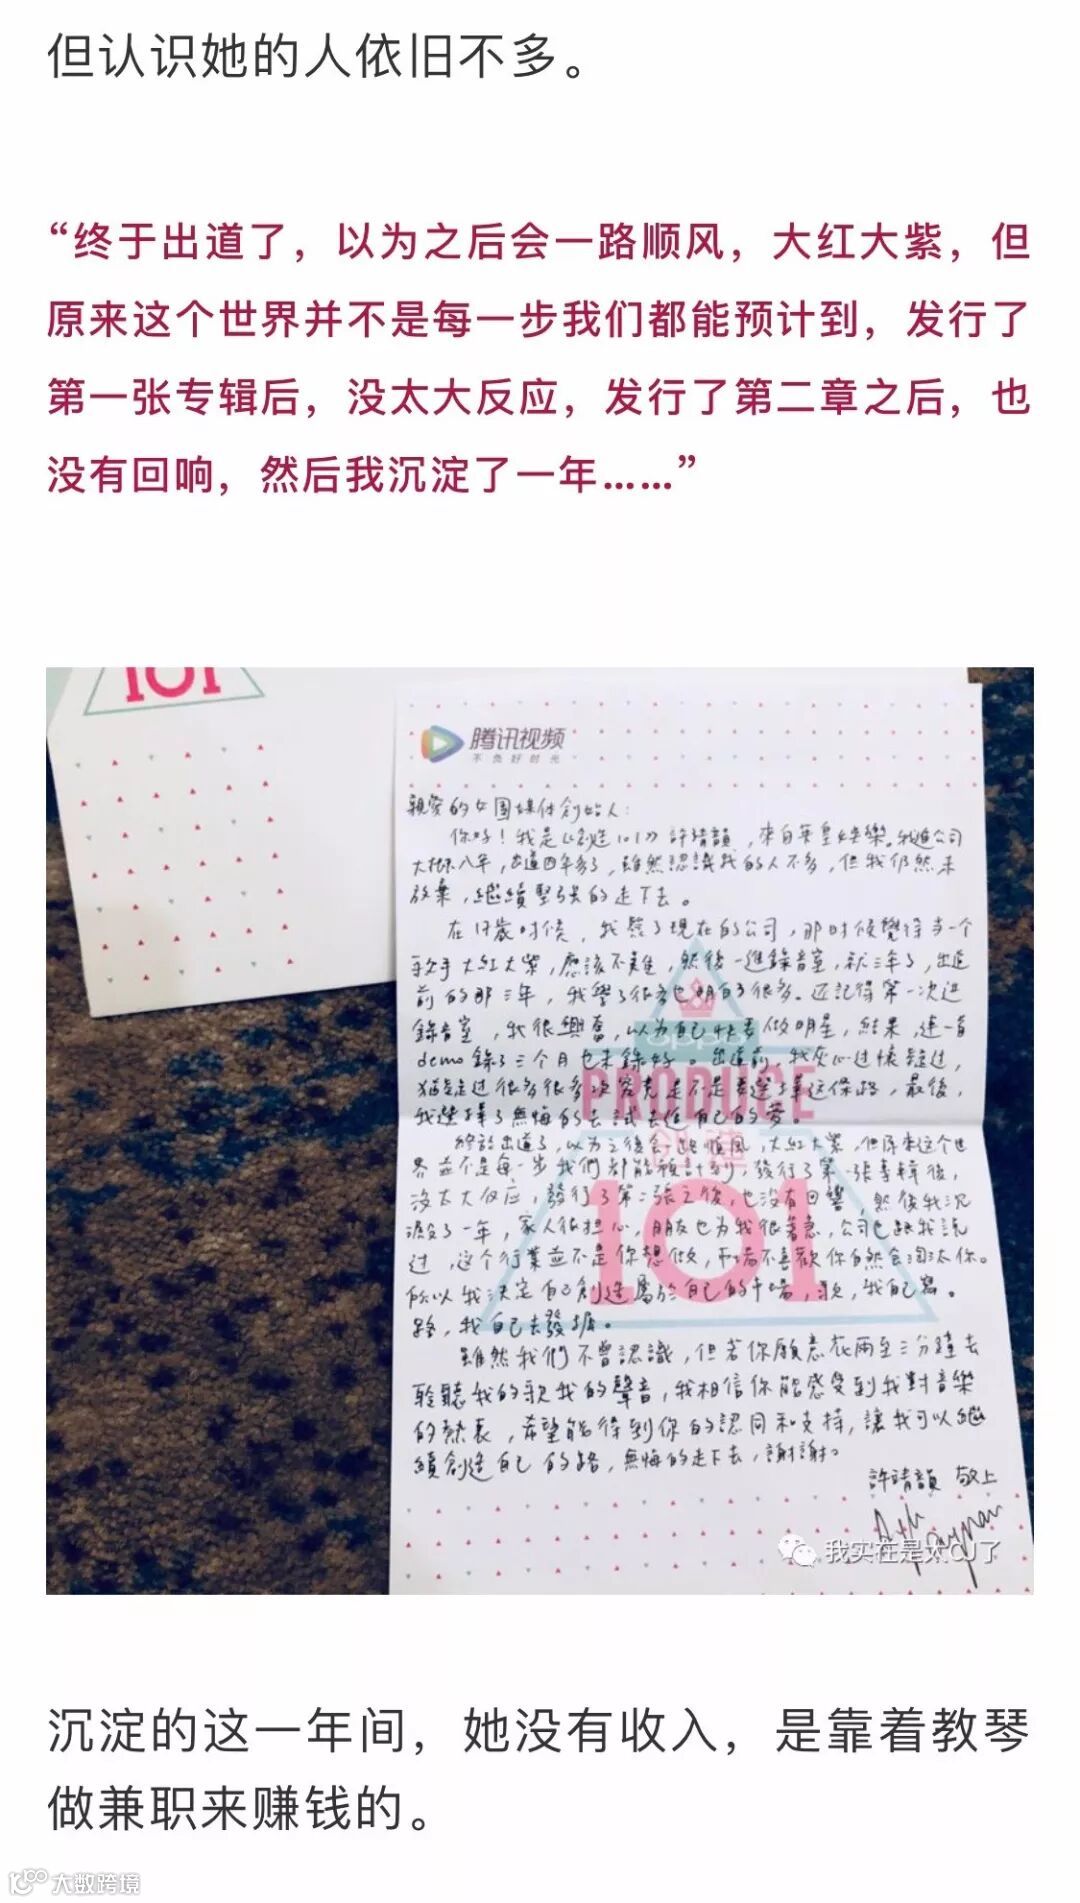 但认识她的人依旧不多。
“终于出道了，以为之后会一路顺风，大红大紫，但
原来这个世界并不是每一步我们都能预计到，发行了
第一张专辑后，没太大反应，发行了第二章之后，也
没有回响，然后我沉淀了一年……”
101
腾讯视频
不负好时光
親愛的女团媒体创始人：
你好！我是《创造101》許靖韻，來自英皇娛樂。我進公司
大概八年，出道四年多了，雖然認識我的人不多，但我仍然未
放棄，繼續堅强的走下去。
在17歲时候，我簽了現在的公司，那时候覺得当一个
歌手大紅大紫，應該不難，然後一進錄音室，就三年了，出道
前的那三年，我學了很多也明白了很多。还記得第一次进
錄音室，我很興奮，以为自己快要做明星，結果，連一首
demo錄了三个月也未錄好。出道前，我灰心过懷疑过，
猶疑过很多很多次究竟是不是要選擇这條路，最後，
我選擇了無悔的去試去追自己的夢。
終於出道了，以为之後会一路順風，大紅大紫，但原來这个世
界並不是每一步我們都能預計到，發行了第一張專輯後，
没太大反应，發行了第二張之後，也没有回響，然後我沉
澱了一年，家人很担心，朋友也为我很著急，公司也跟我說
过，这个行業並不是你想做，市场不喜歡你自然会淘汰你。
所以我決定自己創造屬於自己的市場，歌，我自己寫。
路，我自己去發掘。
雖然我們不曾認識，但若你願意花兩至三分鐘去
聆聽我的歌我的聲音，我相信你能感受到我對音樂
的熱衷，希望能得到你的認同和支持，讓我可以繼
續創造自己的路，無悔的走下去，謝謝。
許靖韻 敬上
oppo
PRODUCE
创造
101
我实在是太CJ了
沉淀的这一年间，她没有收入，是靠着教琴
做兼职来赚钱的。
大数跨境